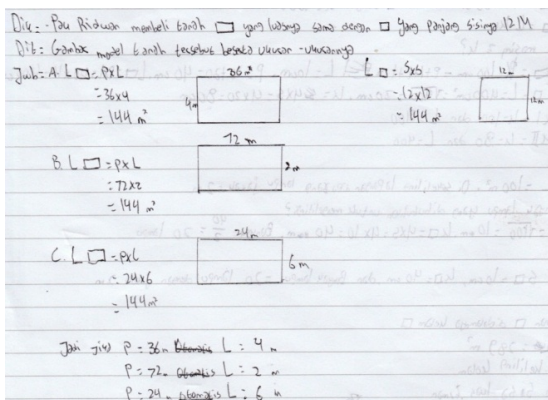 Diu = - Pau Riduan membeli tanah ▭ yang luasnya sama dengan □ yang panjang sisinya 12 M
Dit = Gambar model tanah tersebut beseta ukuran-ukurannya
Jwb = A. L ▭ = PxL
= 36x4
= 144 m²
36 m
4m
L □ = SxS
= 12x12
= 144 m²
12 m
12m
B. L ▭ = PxL
= 72x2
= 144 m²
72 m
2m
C. L ▭ = PxL
= 24x6
= 144 m²
24m
6 m
Jadi jika P = 36 m L = 4 m
P = 72 L = 2 m
P = 24 L = 6 m